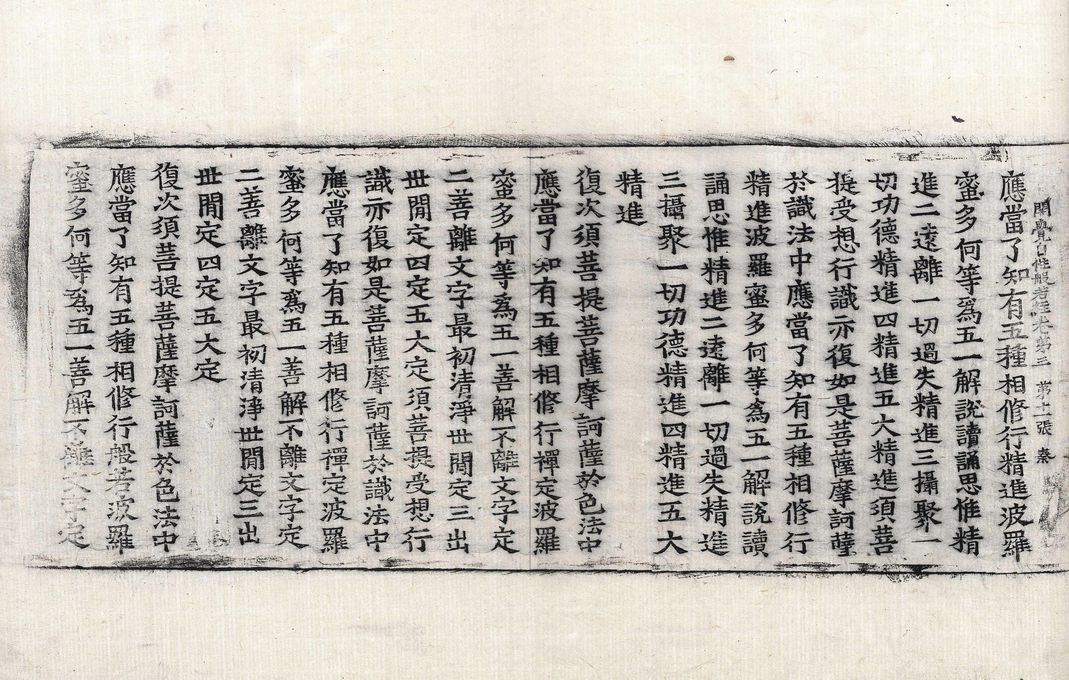 開覺自性般若經卷第三 第十一張 秦
應當了知有五種相修行精進波羅
蜜多何等爲五一解說讀誦思惟精
進二遠離一切過失精進三攝聚一
切功德精進四精進五大精進須菩
提受想行識亦復如是菩薩摩訶薩
於識法中應當了知有五種相修行
精進波羅蜜多何等爲五一解說讀
誦思惟精進二遠離一切過失精進
三攝聚一切功德精進四精進五大
精進
復次須菩提菩薩摩訶薩於色法中
應當了知有五種相修行禪定波羅
蜜多何等爲五一善解不離文字定
二善離文字最初清淨世閒定三出
世閒定四定五大定須菩提受想行
識亦復如是菩薩摩訶薩於識法中
應當了知有五種相修行禪定波羅
蜜多何等爲五一善解不離文字定
二善離文字最初清淨世閒定三出
世閒定四定五大定
復次須菩提菩薩摩訶薩於色法中
應當了知有五種相修行般若波羅
蜜多何等爲五一善解不離文字定